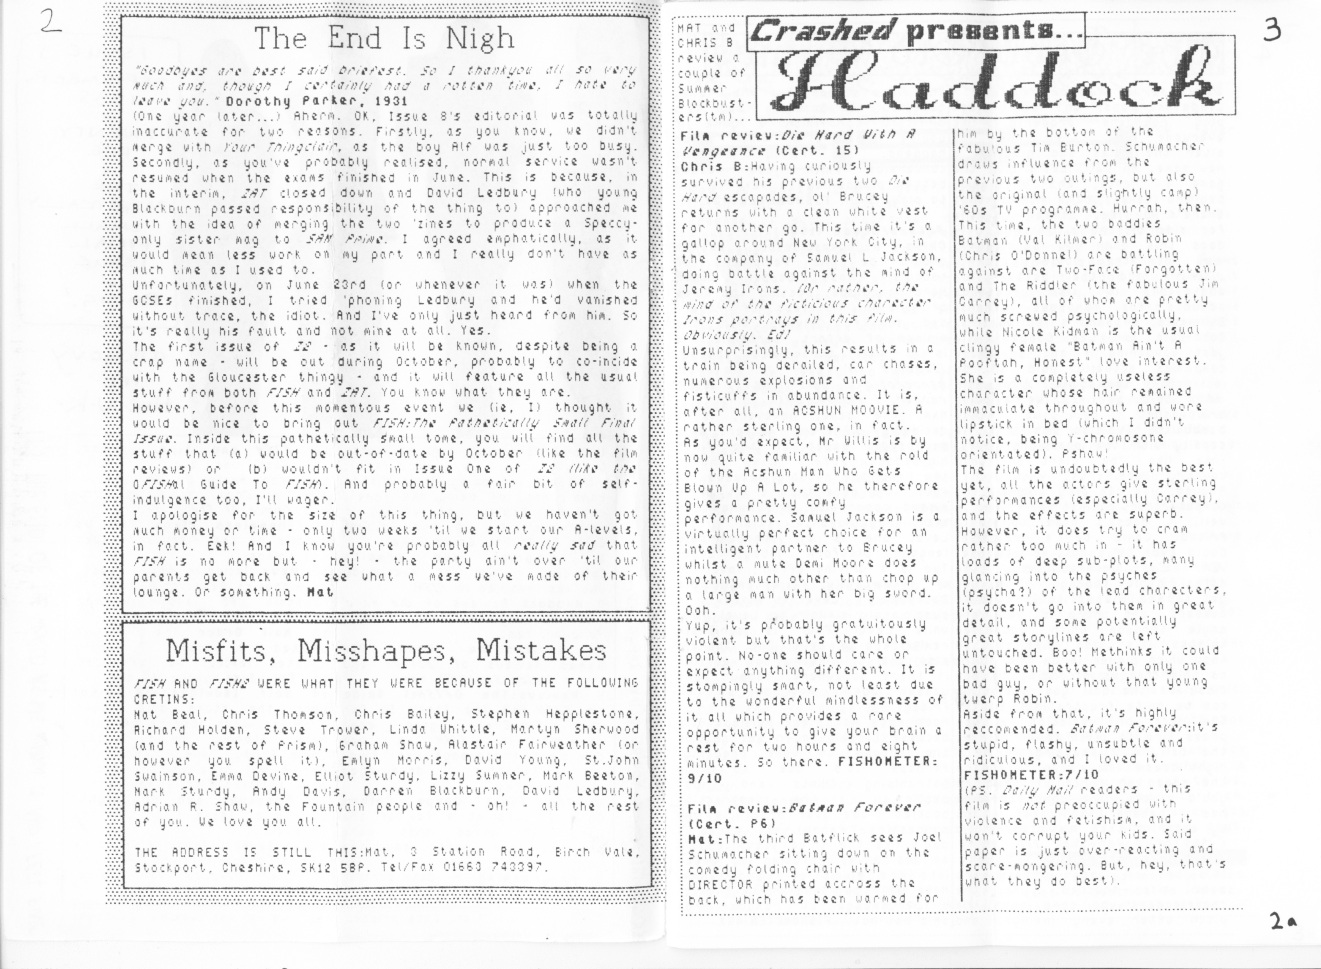 2
The End Is Nigh
"Goodbyes are best said briefest. So I thankyou all so very
much and, though I certainly had a rotten time, I hate to
leave you." Dorothy Parker, 1931
(One year later...) Aherm. OK, Issue 8's editorial was totally
inaccurate for two reasons. Firstly, as you know, we didn't
merge with Your Thingclair, as the boy Alf was just too busy.
Secondly, as you've probably realised, normal service wasn't
resumed when the exams finished in June. This is because, in
the interim, ZAT closed down and David Ledbury (who young
Blackburn passed responsibility of the thing to) approached me
with the idea of merging the two 'zines to produce a Speccy-
only sister mag to SAM Prime. I agreed emphatically, as it
would mean less work on my part and I really don't have as
much time as I used to.
Unfortunately, on June 23rd (or whenever it was) when the
GCSEs finished, I tried 'phoning Ledbury and he'd vanished
without trace, the idiot. And I've only just heard from him. So
it's really his fault and not mine at all. Yes.
The first issue of - as it will be known, despite being a
crap name - will be out during October, probably to co-incide
with the Gloucester thingy - and it will feature all the usual
stuff from both FISH and ZAT. You know what they are.
However, before this momentous event we (ie, I) thought it
would be nice to bring out FISH:The Pathetically Small Final
Issue. Inside this pathetically small tome, you will find all the
stuff that (a) would be out-of-date by October (like the film
reviews) or (b) wouldn't fit in Issue One of (like the
OFISHal Guide To FISH). And probably a fair bit of self-
indulgence too, I'll wager.
I apologise for the size of this thing, but we haven't got
much money or time - only two weeks 'til we start our A-levels,
in fact. Eek! And I know you're probably all really sad that
FISH is no more but - hey! - the party ain't over 'til our
parents get back and see what a mess we've made of their
lounge. Or something. Mat
Misfits, Misshapes, Mistakes
FISH AND FISH2 WERE WHAT THEY WERE BECAUSE OF THE FOLLOWING
CRETINS:
Mat Beal, Chris Thomson, Chris Bailey, Stephen Hepplestone,
Richard Holden, Steve Trower, Linda Whittle, Martyn Sherwood
(and the rest of Prism), Graham Shaw, Alastair Fairweather (or
however you spell it), Emlyn Morris, David Young, St.John
Swainson, Emma Devine, Elliot Sturdy, Lizzy Sumner, Mark Beeton,
Mark Sturdy, Andy Davis, Darren Blackburn, David Ledbury,
Adrian R. Shaw, the Fountain people and - oh! - all the rest
of you. We love you all.
THE ADDRESS IS STILL THIS:Mat, 3 Station Road, Birch Vale,
Stockport, Cheshire, SK12 5BP. Tel/Fax 01663 743397.
3
Crashed presents...
Haddock
MAT and
CHRIS B
review a
couple of
Summer
Blockbust-
ers(tm)...
Film review:Die Hard With A
Vengeance (Cert. 15)
Chris B:Having curiously
survived his previous two Die
Hard escapades, ol' Brucey
returns with a clean white vest
for another go. This time it's a
gallop around New York City, in
the company of Samuel L Jackson,
doing battle against the mind of
Jeremy Irons. (Or rather, the
mind of the ficticious charecter
Irons portrays in this film.
Obviously. Ed)
Unsurprisingly, this results in a
train being derailed, car chases,
numerous explosions and
fisticuffs in abundance. It is,
after all, an ACSHUN MOOVIE. A
rather sterling one, in fact.
As you'd expect, Mr Willis is by
now quite familiar with the rold
of the Acshun Man Who Gets
Blown Up A Lot, so he therefore
gives a pretty comfy
performance. Samuel Jackson is a
virtually perfect choice for an
intelligent partner to Brucey
whilst a mute Demi Moore does
nothing much other than chop up
a large man with her big sword.
Ooh.
Yup, it's probably gratuitously
violent but that's the whole
point. No-one should care or
expect anything different. It is
stompingly smart, not least due
to the wonderful mindlessness of
it all which provides a rare
opportunity to give your brain a
rest for two hours and eight
minutes. So there. FISHOMETER:
9/10
Film review:Batman Forever
(Cert. PG)
Mat:The third Batflick sees Joel
Schumacher sitting down on the
comedy folding chair with
DIRECTOR printed accross the
back, which has been warmed for
him by the bottom of the
fabulous Tim Burton. Schumacher
draws influence from the
previous two outings, but also
the original (and slightly camp)
'60s TV programme. Hurrah, then.
This time, the two baddies
Batman (Val Kilmer) and Robin
(Chris O'Donnel) are battling
against are Two-Face (Forgotten)
and The Riddler (the fabulous Jim
Carrey), all of whom are pretty
much screwed psychologically,
while Nicole Kidman is the usual
clingy female "Batman Ain't A
Pooftah, Honest" love interest.
She is a completely useless
character whose hair remained
immaculate throughout and wore
lipstick in bed (which I didn't
notice, being Y-chromosone
orientated). Pshaw!
The film is undoubtedly the best
yet, all the actors give sterling
performances (especially Carrey),
and the effects are superb.
However, it does try to cram
rather too much in - it has
loads of deep sub-plots, many
glancing into the psyches
(psycha?) of the lead charecters,
it doesn't go into them in great
detail, and some potentially
great storylines are left
untouched. Boo! Methinks it could
have been better with only one
bad guy, or without that young
twerp Robin.
Aside from that, it's highly
reccomended. Batman Forever:it's
stupid, flashy, unsubtle and
ridiculous, and I loved it.
FISHOMETER:7/10
(PS. Daily Mail readers - this
film is not preoccupied with
violence and fetishism, and it
won't corrupt your kids. Said
paper is just over-reacting and
scare-mongering. But, hey, that's
what they do best).
2a